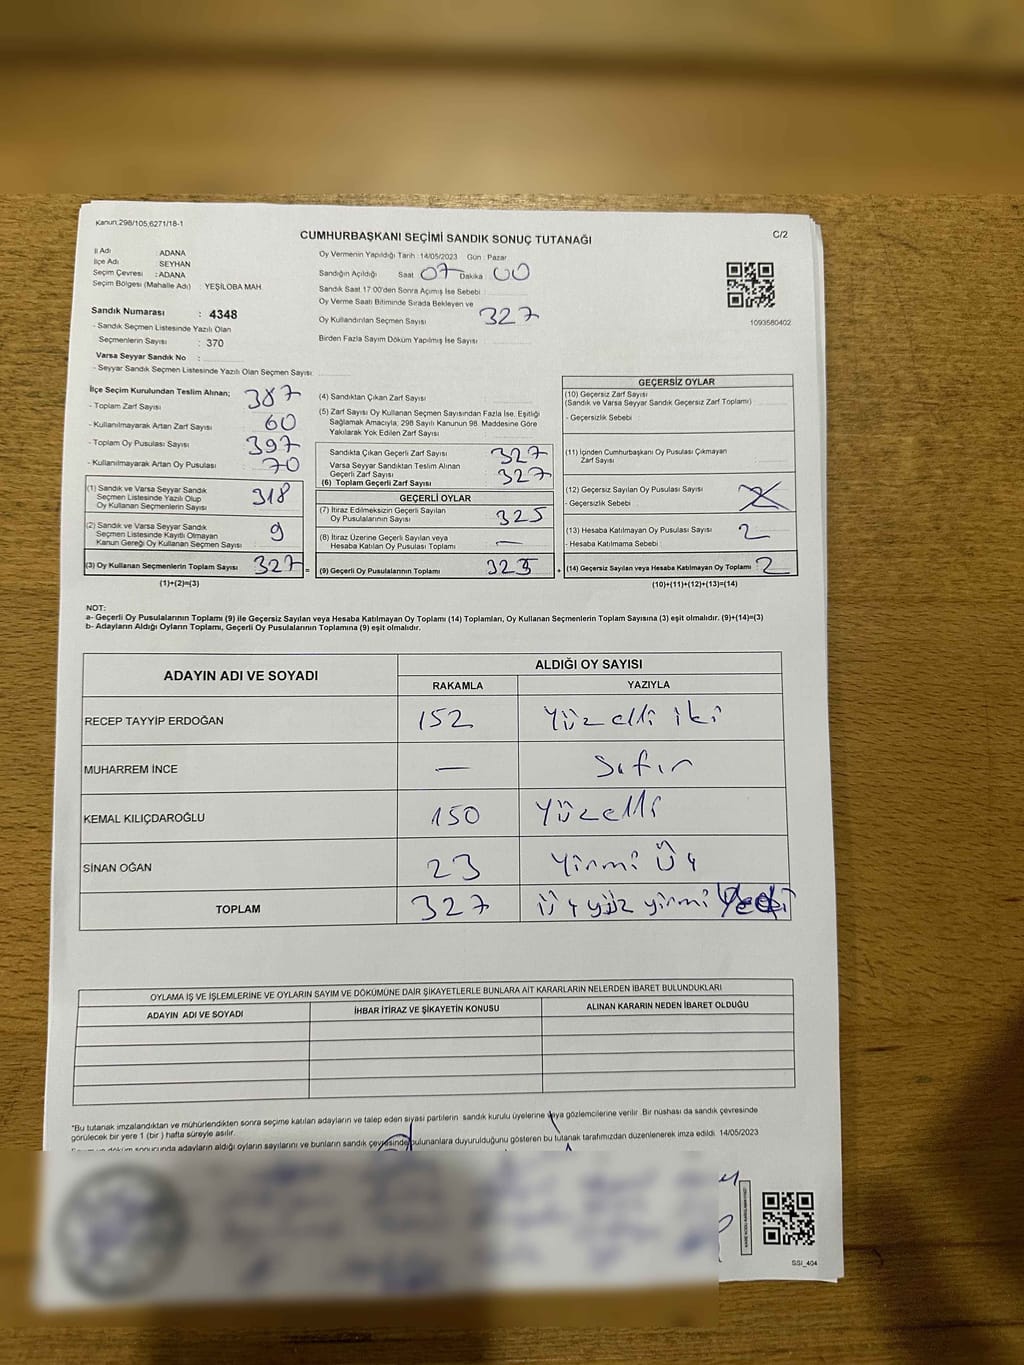 Kanun:298/105,6271/18-1
CUMHURBAŞKANI SEÇİMİ SANDIK SONUÇ TUTANAĞI
C/2
İl Adı : ADANA
İlçe Adı : SEYHAN
Seçim Çevresi : ADANA
Seçim Bölgesi (Mahalle Adı) : YEŞİLOBA MAH.
Sandık Numarası : 4348
- Sandık Seçmen Listesinde Yazılı Olan
Seçmenlerin Sayısı : 370
Varsa Seyyar Sandık No :
- Seyyar Sandık Seçmen Listesinde Yazılı Olan Seçmen Sayısı:
Oy Vermenin Yapıldığı Tarih :14/05/2023 Gün : Pazar
Sandığın Açıldığı Saat 07 Dakika : 00
Sandık Saat 17:00'den Sonra Açılmış İse Sebebi
Oy Verme Saati Bitiminde Sırada Bekleyen ve
Oy Kullandırılan Seçmen Sayısı 327
Birden Fazla Sayım Döküm Yapılmış İse Sayısı
1093580402
İlçe Seçim Kurulundan Teslim Alınan;
- Toplam Zarf Sayısı 387
- Kullanılmayarak Artan Zarf Sayısı 60
- Toplam Oy Pusulası Sayısı 397
- Kullanılmayarak Artan Oy Pusulası 70
(1) Sandık ve Varsa Seyyar Sandık
Seçmen Listesinde Yazılı Olup
Oy Kullanan Seçmenlerin Sayısı 318
(2) Sandık ve Varsa Seyyar Sandık
Seçmen Listesinde Kayıtlı Olmayan
Kanun Gereği Oy Kullanan Seçmen Sayısı 9
(3) Oy Kullanan Seçmenlerin Toplam Sayısı 327 =
(1)+(2)=(3)
(4) Sandıktan Çıkan Zarf Sayısı
(5) Zarf Sayısı Oy Kullanan Seçmen Sayısından Fazla İse, Eşitliği
Sağlamak Amacıyla, 298 Sayılı Kanunun 98. Maddesine Göre
Yakılarak Yok Edilen Zarf Sayısı
Sandıkta Çıkan Geçerli Zarf Sayısı 327
Varsa Seyyar Sandıktan Teslim Alınan
Geçerli Zarf Sayısı
(6) Toplam Geçerli Zarf Sayısı 327
GEÇERLİ OYLAR
(7) İtiraz Edilmeksizin Geçerli Sayılan
Oy Pusulalarının Sayısı 325
(8) İtiraz Üzerine Geçerli Sayılan veya
Hesaba Katılan Oy Pusulası Toplamı —
(9) Geçerli Oy Pusulalarının Toplamı +
GEÇERSİZ OYLAR
(10) Geçersiz Zarf Sayısı
(Sandık ve Varsa Seyyar Sandık Geçersiz Zarf Toplamı)
- Geçersizlik Sebebi
(11) İçinden Cumhurbaşkanı Oy Pusulası Çıkmayan
Zarf Sayısı
(12) Geçersiz Sayılan Oy Pusulası Sayısı
- Geçersizlik Sebebi
(13) Hesaba Katılmayan Oy Pusulası Sayısı 2
- Hesaba Katılmama Sebebi
(14) Geçersiz Sayılan veya Hesaba Katılmayan Oy Toplamı 2
(10)+(11)+(12)+(13)=(14)
NOT:
a- Geçerli Oy Pusulalarının Toplamı (9) ile Geçersiz Sayılan veya Hesaba Katılmayan Oy Toplamı (14) Toplamları, Oy Kullanan Seçmenlerin Toplam Sayısına (3) eşit olmalıdır. (9)+(14)=(3)
b- Adayların Aldığı Oyların Toplamı, Geçerli Oy Pusulalarının Toplamına (9) eşit olmalıdır.
ADAYIN ADI VE SOYADI ALDIĞI OY SAYISI
RAKAMLA YAZIYLA
RECEP TAYYİP ERDOĞAN 152 Yüzelli iki
MUHARREM İNCE — Sıfır
KEMAL KILIÇDAROĞLU 150 Yüzelli
SİNAN OĞAN 23 Yirmi Üç
TOPLAM 327 Üçyüz yirmi Yedi
OYLAMA İŞ VE İŞLEMLERİNE VE OYLARIN SAYIM VE DÖKÜMÜNE DAİR ŞİKAYETLERLE BUNLARA AİT KARARLARIN NELERDEN İBARET BULUNDUKLARI
ADAYIN ADI VE SOYADI İHBAR İTİRAZ VE ŞİKAYETİN KONUSU ALINAN KARARIN NEDEN İBARET OLDUĞU
*Bu tutanak imzalandıktan ve mühürlendikten sonra seçime katılan adayların ve talep eden siyasi partilerin sandık kurulu üyelerine veya gözlemcilerine verilir. Bir nüshası da sandık çevresinde
görülecek bir yere 1 (bir) hafta süreyle asılır.
döküm sonucunda adayların aldığı oyların sayılarını ve bunların sandık çevresinde bulunanlara duyurulduğunu gösteren bu tutanak tarafımızdan düzenlenerek imza edildi. 14/05/2023
SSI_404